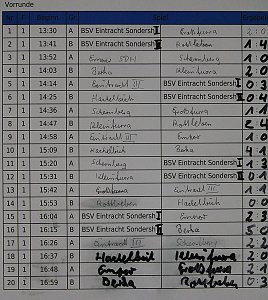 Vorrunde
Nr F Beginn Gr Spiel Ergebnis
1 1 13:30 A BSV Eintracht Sondersh I Großfurra 2:0
2 1 13:41 B BSV Eintracht Sondersh II Rottleben 1:4
3 1 13:52 A Schernberg 1:0
4 1 14:03 B Berka Kleinfurra 2:0
5 1 14:14 A Eintracht III BSV Eintracht Sondersh I 0:3
6 1 14:25 B Hachelbich BSV Eintracht Sondersh II 0:4
7 1 14:36 A Schernberg Großfurra 1:1
8 1 14:47 B Kleinfurra Rottleben 2:4
9 1 14:58 A Eintracht III Empor 1:0
10 1 15:09 B Hachelbich Berka 4:1
11 1 15:20 A Schernberg BSV Eintracht Sondersh I 1:3
12 1 15:31 B Kleinfurra BSV Eintracht Sondersh II 0:1
13 1 15:42 A Großfurra Eintracht III 1:1
14 1 15:53 B Rottleben Hachelbich 0:0
15 1 16:04 A BSV Eintracht Sondersh I Empor 2:3
16 1 16:15 B BSV Eintracht Sondersh II Berka 5:0
17 1 16:26 A Eintracht III Schernberg 2:2
18 1 16:37 B Hachelbich Kleinfurra 2:0
19 1 16:48 A Empor Großfurra 2:1
20 1 16:59 B Berka Rottleben 0:3